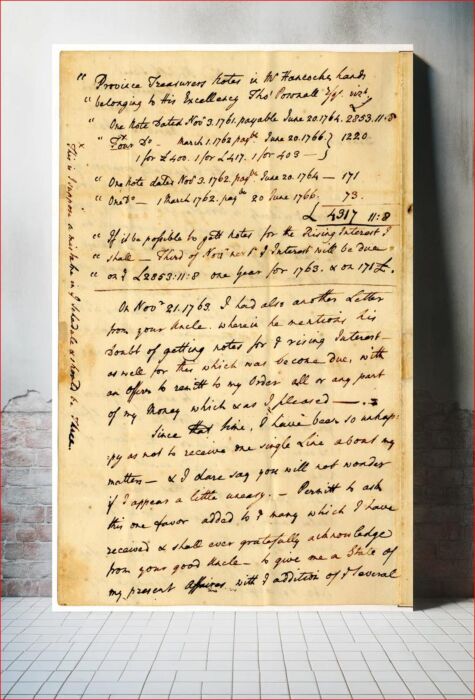 " Province Treasurers Notes in Mr Hancocks hands
" belonging to His Excellency Thos Pownall Esqr. vizt.
" One Note Dated Novr 3. 1761. payable June 20. 1764. 2853. 11:8
" Four Do — March 1. 1762 payble June 20. 1766. } 1220
1 for £400. 1 for £417. 1 for 403 — }
" One note dated Novr 3. 1762. payble June 20. 1764 — 171
" One do — 1 March 1762. payble 20 June 1766. 73.
£ 4317 11:8
" If it be possible to gett notes for the Rising Interest I
" shall — Third of Novr next Interest will be due
" on £2853:11:8 one year for 1763. & on 171£.
On Novr 21. 1763. I had also another Letter
from your Uncle. wherein he mentions his
Doubt of getting notes for rising Interest —
as well for this which was become due, with
an Offer to remitt to my Order all or any part
of my Money which & as I pleased —
Since that time, I have been so unhap-
py as not to receive one single Line about my
matters — & I dare say you will not wonder
if I appear a little uneasy. — Permitt to ask
this one favor added to many which I have
received & shall ever gratefully acknowledge
from your good Uncle — to give me a State of
my present Affaires with addition of several
x This is I suppose a mistake in Schedule & should be Three.